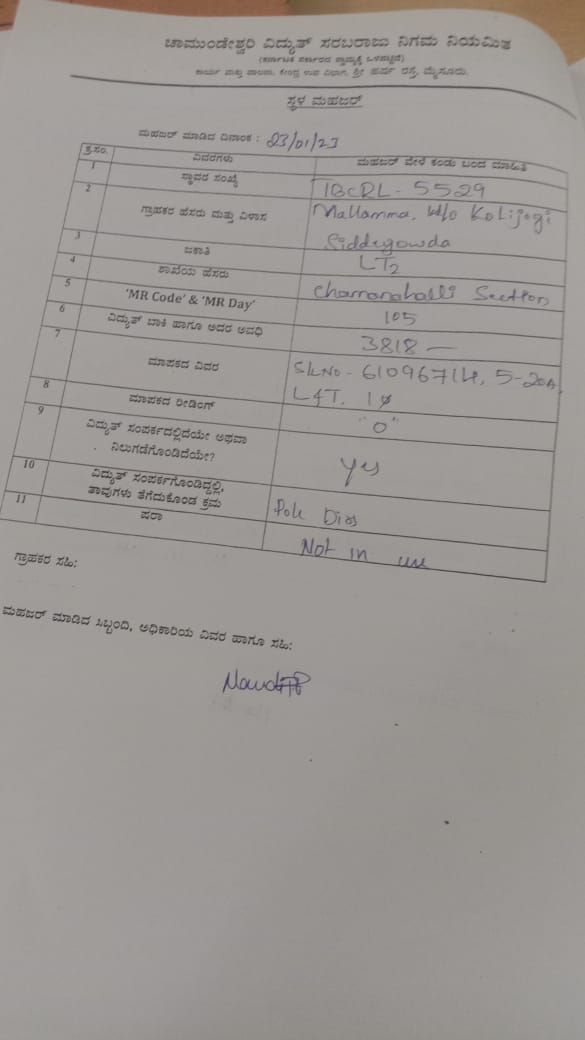 ಚಾಮುಂಡೇಶ್ವರಿ ವಿದ್ಯುತ್ ಸರಬರಾಜು ನಿಗಮ ನಿಯಮಿತ
(ಕರ್ನಾಟಕ ಸರ್ಕಾರದ ಸ್ವಾಮ್ಯಕ್ಕೆ ಒಳಪಟ್ಟಿದೆ)
ಕಾರ್ಯ ಮತ್ತು ಪಾಲನಾ, ಕೇಂದ್ರ ಉಪ ವಿಭಾಗ, ಶ್ರೀ ಹರ್ಷ ರಸ್ತೆ, ಮೈಸೂರು.
ಸ್ಥಳ ಮಹಜರ್
ಮಹಜರ್ ಮಾಡಿದ ದಿನಾಂಕ : 23/01/23
ಕ್ರ.ಸಂ. ವಿವರಗಳು ಮಹಜರ್ ವೇಳೆ ಕಂಡು ಬಂದ ಮಾಹಿತಿ
1 ಸ್ಥಾವರ ಸಂಖ್ಯೆ TBCRL - 5529
2 ಗ್ರಾಹಕರ ಹೆಸರು ಮತ್ತು ವಿಳಾಸ Mallamma, W/o Kolijogi
Siddegowda
3 ಜಕಾತಿ LT2
4 ಶಾಖೆಯ ಹೆಸರು Chamanahalli Section
5 'MR Code' & 'MR Day' 105
6 ವಿದ್ಯುತ್ ಬಾಕಿ ಹಾಗೂ ಅದರ ಅವಧಿ 3818 —
7 ಮಾಪಕದ ವಿವರ Sl.No - 61096714, 5-20A,
L&T. 1φ
8 ಮಾಪಕದ ರೀಡಿಂಗ್ "0"
9 ವಿದ್ಯುತ್ ಸಂಪರ್ಕದಲ್ಲಿದೆಯೇ ಅಥವಾ
ನಿಲುಗಡೆಗೊಂಡಿದೆಯೇ? yes
10 ವಿದ್ಯುತ್ ಸಂಪರ್ಕಗೊಂಡಿದ್ದಲ್ಲಿ,
ತಾವುಗಳು ತೆಗೆದುಕೊಂಡ ಕ್ರಮ Pole Diss
11 ಷರಾ Not in use
ಗ್ರಾಹಕರ ಸಹಿ:
ಮಹಜರ್ ಮಾಡಿದ ಸಿಬ್ಬಂದಿ, ಅಧಿಕಾರಿಯ ವಿವರ ಹಾಗೂ ಸಹಿ: